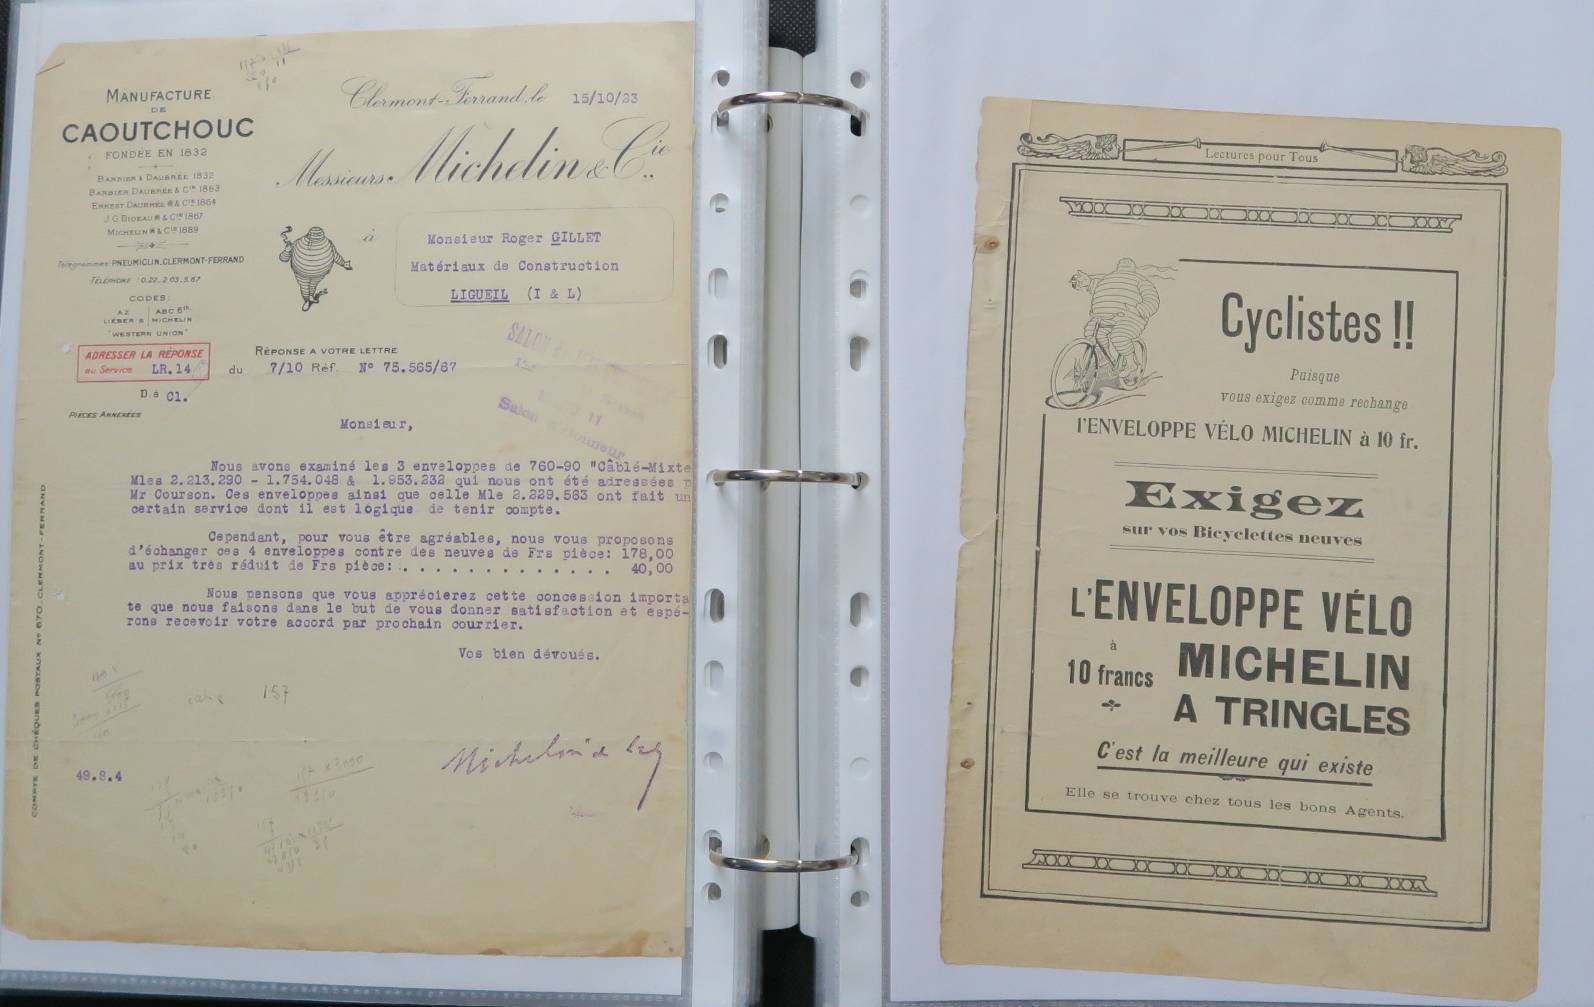 MANUFACTURE
DE
CAOUTCHOUC
FONDÉE EN 1832
BARBIER & DAUBRÉE 1832
BARBIER DAUBRÉE & Cie 1863
ERNEST DAUBRÉE & Cie 1864
J.G. BIDEAU & Cie 1867
MICHELIN & Cie 1889
Télégrammes: PNEUMICLIN.CLERMONT-FERRAND
TÉLÉPHONE : 0.22_2.03_3.67
CODES:
A Z
LIEBER'S
ABC 5th
MICHELIN
"WESTERN UNION"
ADRESSER LA RÉPONSE
au Service LR.14
D.é Cl.
PIÈCES ANNEXÉES
Clermont-Ferrand, le 15/10/23
Messieurs Michelin & Cie
à
Monsieur Roger GILLET
Matériaux de Construction
LIGUEIL (I & L)
RÉPONSE A VOTRE LETTRE
du 7/10 Réf. N° 75.565/67
SALON
Salon d'Honneur
Monsieur,
Nous avons examiné les 3 enveloppes de 760-90 "Câblé-Mixte
Mles 2.213.290 - 1.754.048 & 1.953.232 qui nous ont été adressées p
Mr Courson. Ces enveloppes ainsi que celle Mle 2.229.583 ont fait un
certain service dont il est logique de tenir compte.
Cependant, pour vous être agréables, nous vous proposons
d'échanger ces 4 enveloppes contre des neuves de Frs pièce: 178,00
au prix très réduit de Frs pièce: . . . . . . . . . . . . . . 40,00
Nous pensons que vous apprécierez cette concession importa
te que nous faisons dans le but de vous donner satisfaction et espé-
rons recevoir votre accord par prochain courrier.
Vos bien dévoués.
157
Michelin & Cie
49.9.4
COMPTE DE CHÈQUES POSTAUX No 670, CLERMONT-FERRAND
Lectures pour Tous
Cyclistes !!
Puisque
vous exigez comme rechange
l'ENVELOPPE VÉLO MICHELIN à 10 fr.
Exigez
sur vos Bicyclettes neuves
L'ENVELOPPE VÉLO
à
10 francs
MICHELIN
A TRINGLES
C'est la meilleure qui existe
Elle se trouve chez tous les bons Agents.